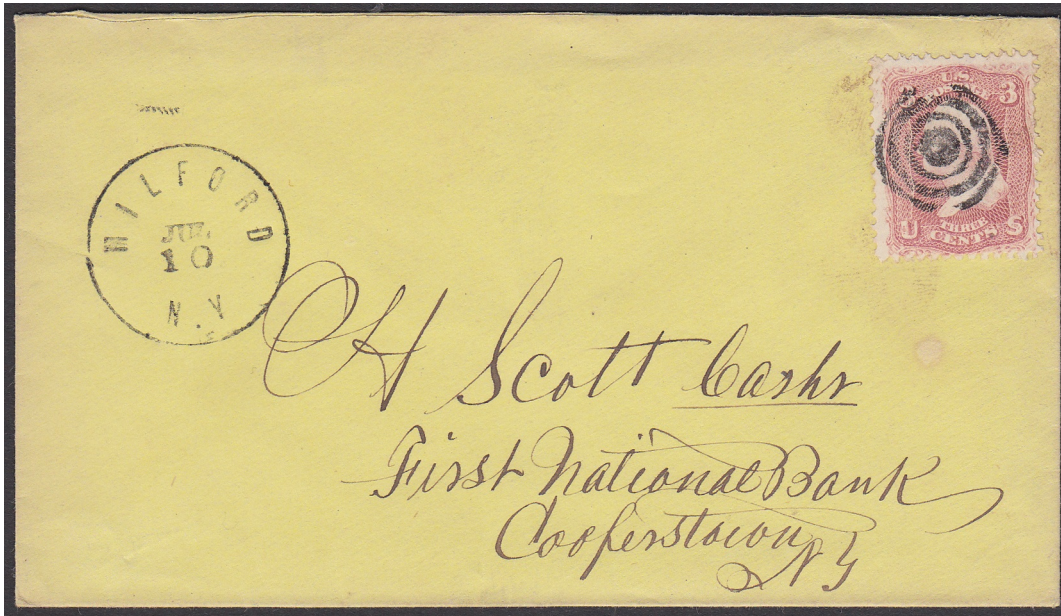 MILFORD
JUL.
10
N.Y
U.S.
3
THREE
U CENTS S
H Scott Cashr
First National Bank
Cooperstown
NY